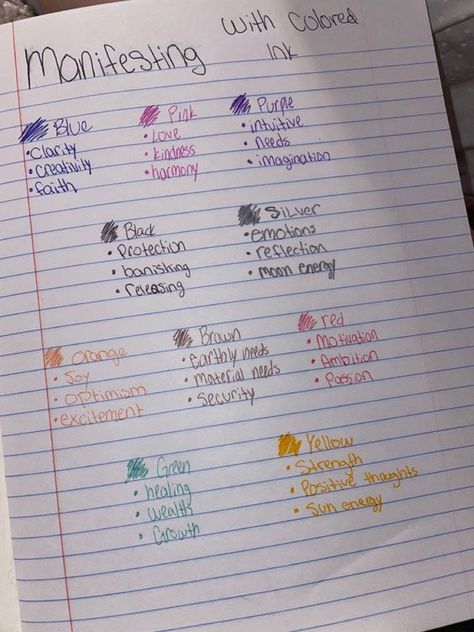 Manifesting with Colored
Ink
Blue
• Clarity
• creativity
• faith
Pink
• Love
• kindness
• harmony
Purple
• intuitive
• needs
• imagination
Black
• Protection
• banishing
• releasing
Silver
• emotions
• reflection
• moon energy
Orange
• Joy
• Optimism
• excitement
Brown
• Earthly needs
• material needs
• Security
red
• Motivation
• Ambition
• Passion
Green
• healing
• wealth
• Growth
Yellow
• Strength
• Positive thoughts
• Sun energy